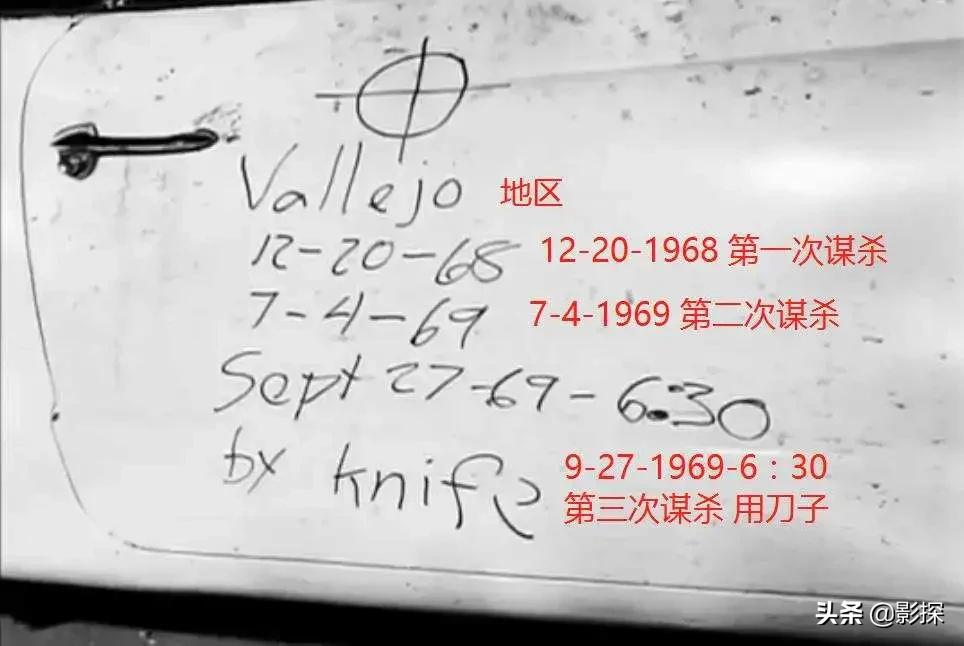 Vallejo 地区
12-20-68 12-20-1968 第一次谋杀
7-4-69 7-4-1969 第二次谋杀
Sept 27-69-6:30
by knife 9-27-1969-6：30
第三次谋杀 用刀子
头条 @影探